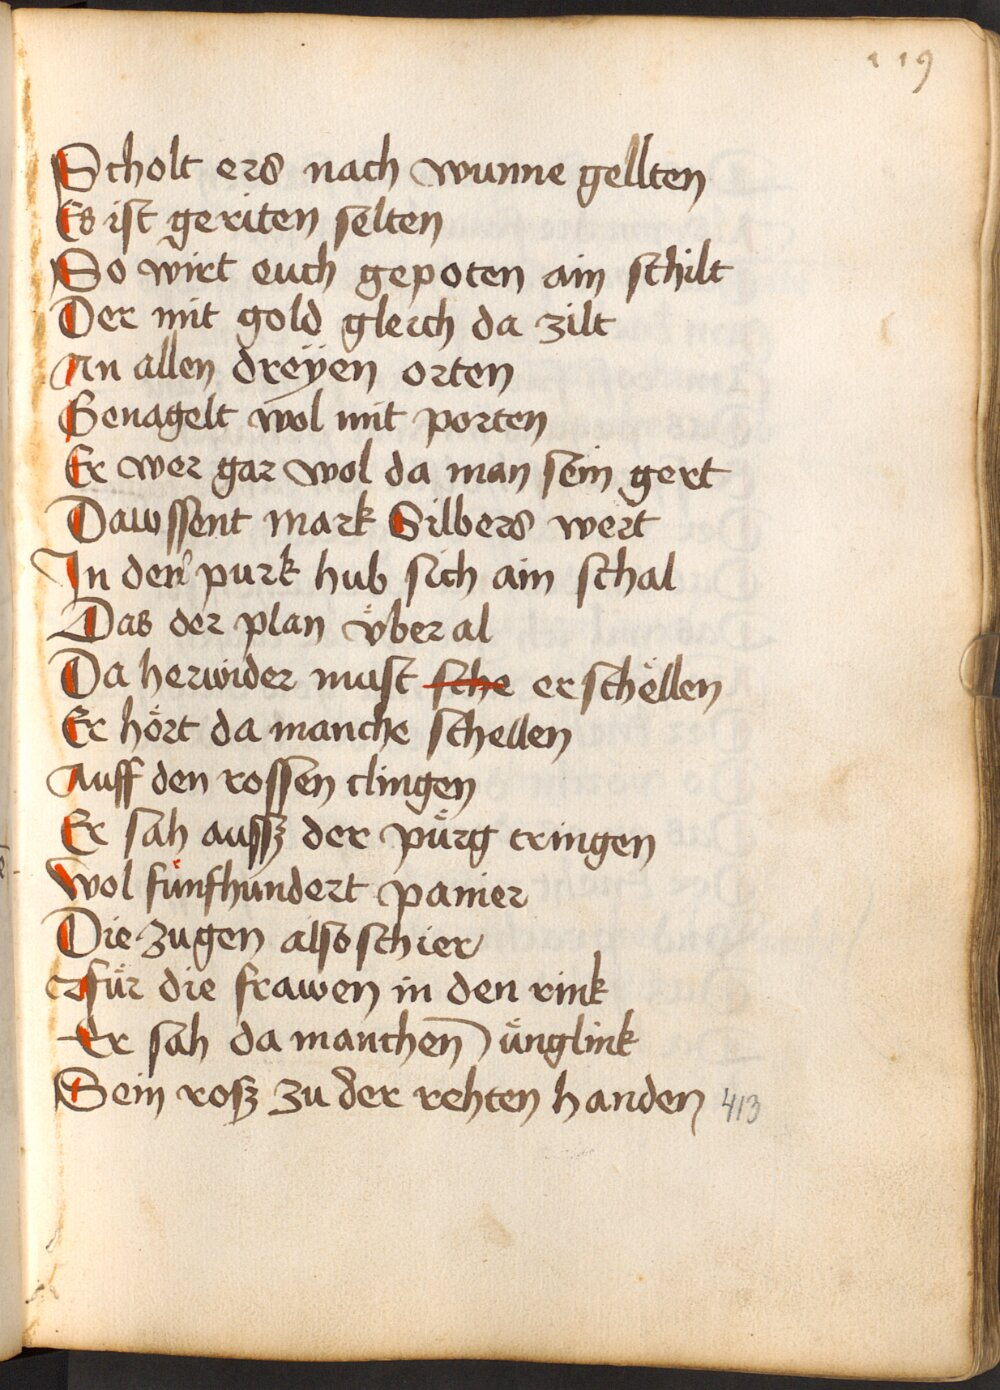 119
Scholt ers nach wunne gellten
Es ist geriten selten
So wirt euch gepoten ain schilt
Der mit gold gleich da zilt
An allen dreÿen orten
Genagelt wol mit porten
Er wer gar wol da man sein gert
Dawssent mark Silbers wert
In der purk hub sich ain schal
Das der plan vͤber al
Da herwider must sche erschellen
Er hört da manche schellen
Auff den rossen clingen
Er sah aussz der pürg tringen
Wol fünfhundert panier
Die zugen also schier
für die frawen in den rink
Er sah da manchen ünglink
Sein rosz zu der rehten handen 413